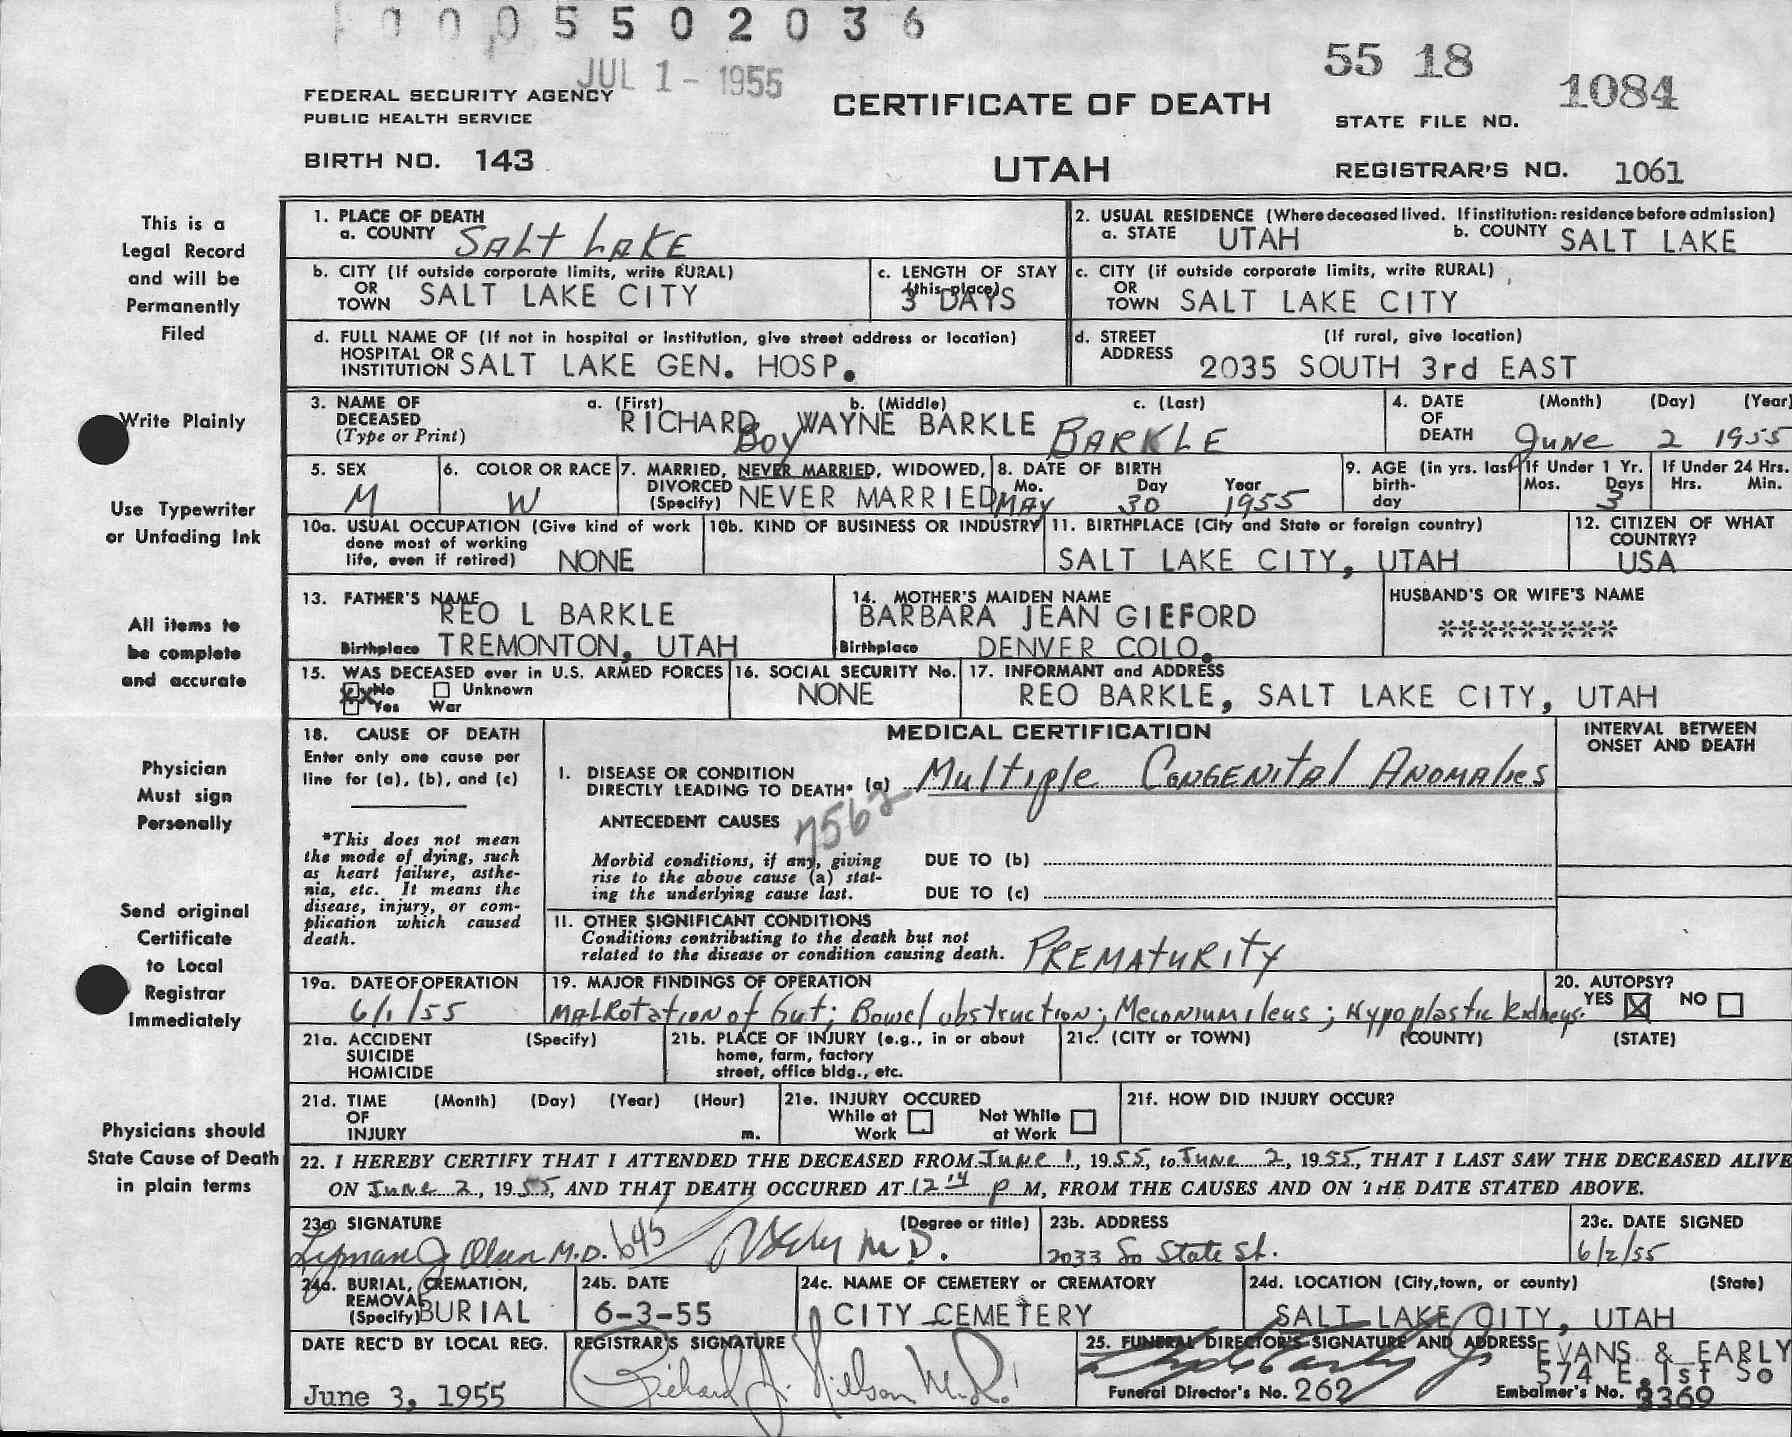 0005502036
JUL 1 - 1955
55 18
1084
FEDERAL SECURITY AGENCY
PUBLIC HEALTH SERVICE
CERTIFICATE OF DEATH
STATE FILE NO.
BIRTH NO. 143
UTAH
REGISTRAR'S NO. 1061
This is a
Legal Record
and will be
Permanently
Filed
Write Plainly
Use Typewriter
or Unfading Ink
All items to
be complete
and accurate
Physician
Must sign
Personally
Send original
Certificate
to Local
Registrar
Immediately
Physicians should
State Cause of Death
in plain terms
1. PLACE OF DEATH
a. COUNTY SALT LAKE
2. USUAL RESIDENCE (Where deceased lived. If institution: residence before admission)
a. STATE UTAH b. COUNTY SALT LAKE
b. CITY (If outside corporate limits, write RURAL)
OR
TOWN SALT LAKE CITY
c. LENGTH OF STAY
(this place)
3 DAYS
c. CITY (if outside corporate limits, write RURAL)
OR
TOWN SALT LAKE CITY
d. FULL NAME OF (If not in hospital or institution, give street address or location)
HOSPITAL OR
INSTITUTION SALT LAKE GEN. HOSP.
d. STREET (If rural, give location)
ADDRESS
2035 SOUTH 3rd EAST
3. NAME OF
DECEASED
(Type or Print)
a. (First) b. (Middle) c. (Last)
RICHARD WAYNE BARKLE
Boy BARKLE
4. DATE (Month) (Day) (Year)
OF
DEATH June 2 1955
5. SEX
M
6. COLOR OR RACE
W
7. MARRIED, NEVER MARRIED, WIDOWED,
DIVORCED
(Specify) NEVER MARRIED
8. DATE OF BIRTH
Mo. Day Year
MAY 30 1955
9. AGE (in yrs. last
birth-
day
If Under 1 Yr.
Mos. Days
3
If Under 24 Hrs.
Hrs. Min.
10a. USUAL OCCUPATION (Give kind of work
done most of working
life, even if retired) NONE
10b. KIND OF BUSINESS OR INDUSTRY
11. BIRTHPLACE (City and State or foreign country)
SALT LAKE CITY, UTAH
12. CITIZEN OF WHAT
COUNTRY?
USA
13. FATHER'S NAME
REO L BARKLE
Birthplace TREMONTON, UTAH
14. MOTHER'S MAIDEN NAME
BARBARA JEAN GIEFORD
Birthplace DENVER COLO.
HUSBAND'S OR WIFE'S NAME
*********
15. WAS DECEASED ever in U.S. ARMED FORCES
xx No Unknown
Yes War
16. SOCIAL SECURITY No.
NONE
17. INFORMANT and ADDRESS
REO BARKLE, SALT LAKE CITY, UTAH
18. CAUSE OF DEATH
Enter only one cause per
line for (a), (b), and (c)
*This does not mean
the mode of dying, such
as heart failure, asthe-
nia, etc. It means the
disease, injury, or com-
plication which caused
death.
MEDICAL CERTIFICATION
INTERVAL BETWEEN
ONSET AND DEATH
I. DISEASE OR CONDITION
DIRECTLY LEADING TO DEATH* (a) Multiple Congenital Anomalies
7562
ANTECEDENT CAUSES
Morbid conditions, if any, giving
rise to the above cause (a) stat-
ing the underlying cause last.
DUE TO (b)
DUE TO (c)
II. OTHER SIGNIFICANT CONDITIONS
Conditions contributing to the death but not
related to the disease or condition causing death. PREMATURITY
19a. DATE OF OPERATION
6/1/55
19. MAJOR FINDINGS OF OPERATION
Malrotation of Gut; Bowel obstruction; Meconium ileus; Hypoplastic kidneys.
20. AUTOPSY?
YES X NO
21a. ACCIDENT (Specify)
SUICIDE
HOMICIDE
21b. PLACE OF INJURY (e.g., in or about
home, farm, factory
street, office bldg., etc.
21c. (CITY or TOWN) (COUNTY) (STATE)
21d. TIME (Month) (Day) (Year) (Hour)
OF
INJURY m.
21e. INJURY OCCURED
While at Work
Not While at Work
21f. HOW DID INJURY OCCUR?
22. I HEREBY CERTIFY THAT I ATTENDED THE DECEASED FROM June 1, 1955, to June 2, 1955, THAT I LAST SAW THE DECEASED ALIVE
ON June 2, 1955, AND THAT DEATH OCCURED AT 12 14 P M, FROM THE CAUSES AND ON THE DATE STATED ABOVE.
23a SIGNATURE (Degree or title)
Lyman J Olsen M.D. 645 M.D.
23b. ADDRESS
2033 So State St.
23c. DATE SIGNED
6/2/55
24a. BURIAL, CREMATION,
REMOVAL
(Specify) BURIAL
24b. DATE
6-3-55
24c. NAME OF CEMETERY or CREMATORY
CITY CEMETERY
24d. LOCATION (City, town, or county) (State)
SALT LAKE CITY, UTAH
DATE REC'D BY LOCAL REG.
June 3, 1955
REGISTRAR'S SIGNATURE
Richard J. Nielson M.D.
25. FUNERAL DIRECTOR'S SIGNATURE AND ADDRESS
EVANS & EARLY
574 E. 1st So
Funeral Director's No. 262
Embalmer's No. 3369